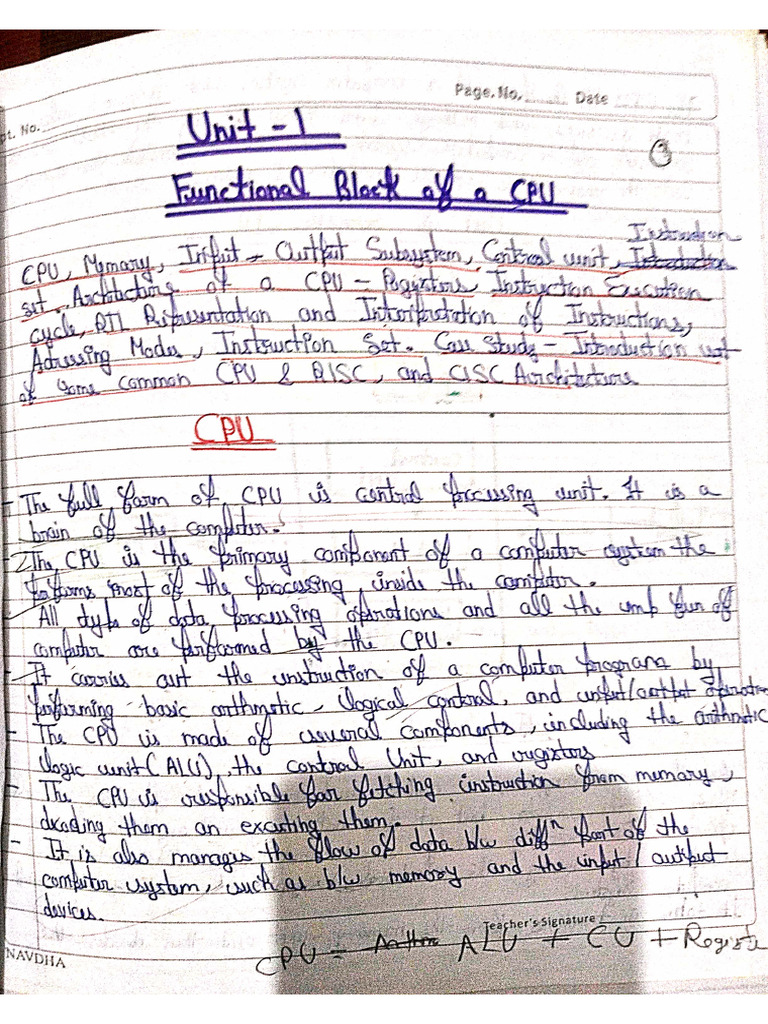 Page. No. Date
pt. No.
Unit - 1
1
Functional Block of a CPU
Instruction
CPU, Memory, Input - Output Subsystem, Control unit, Introduction
set Architecture of a CPU - Registers, Instruction Execution
cycle, RTL Representation and Interpretation of Instructions,
Adressing Modes, Instruction Set. Case Study - Introduction set
of some common CPU & RISC, and CISC Architecture
CPU
- The full form of CPU is central processing unit. It is a
brain of the computer.
- The CPU is the primary component of a computer system the
performs most of the processing inside the computer.
- All type of data processing operations and all the imp fun of
computer are performed by the CPU.
- It carries out the instruction of a computer program by
performing basic arithmetic, logical control, and input/output operation
- The CPU is made of several components, including the arithmetic
logic unit (ALU), the control Unit, and registers
- The CPU is responsible for fetching instruction from memory,
decoding them an excuting them.
- It is also manages the flow of data b/w diffn part of the
computer system, such as b/w memory and the input / output
devices.
Teacher's Signature
CPU = ALU + CU + Regist
NAVDHA